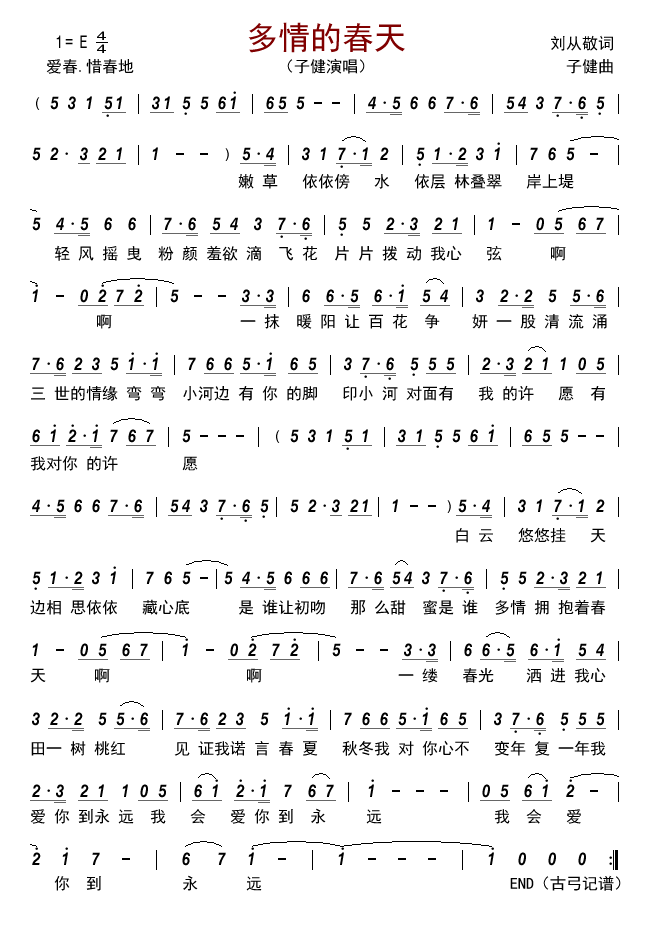 多情的春天
1= E 4/4
刘从敬词
爱春.惜春地
（子健演唱）
子健曲
( 5 3 1 51 | 31 5 5 61 | 65 5 - - | 4·5 6 6 7·6 | 54 3 7·6 5 |
5 2· 3 21 | 1 - - ) 5·4 | 3 1 7·1 2 | 5 1·2 3 1 | 7 6 5 - |
嫩 草 依依傍 水 依层 林叠翠 岸上堤
5 4·5 6 6 | 7·6 54 3 7·6 | 5 5 2·3 21 | 1 - 05 67 |
轻 风 摇 曳 粉 颜 羞欲 滴 飞 花 片 片 拨 动 我心 弦 啊
1 - 02 72 | 5 - - 3·3 | 6 6·5 6·1 54 | 3 2·2 5 5·6 |
啊 一 抹 暖 阳 让 百 花 争 妍 一 股 清 流 涌
7·6 23 5 1·1 | 7 66 5·1 65 | 3 7·6 555 | 2·3 21 1 05 |
三 世的情缘 弯 弯 小河边 有 你 的脚 印小 河 对面有 我 的许 愿 有
61 2·1 7 67 | 5 - - - | ( 5 3 1 51 | 31 5 5 61 | 65 5 - - |
我对你 的许 愿
4·5 6 6 7·6 | 54 3 7·6 5 | 5 2·3 21 | 1 - - ) 5·4 | 3 1 7·1 2 |
白 云 悠悠挂 天
5 1·2 3 1 | 7 6 5 - | 54 5·5 666 | 7·6 54 3 7·6 | 5 5 2·3 21 |
边相 思依依 藏心底 是 谁让初吻 那 么甜 蜜是 谁 多情 拥 抱着春
1 - 05 67 | 1 - 02 72 | 5 - - 3·3 | 6 6·5 6·1 54 |
天 啊 啊 一 缕 春光 洒 进 我心
3 2·2 5 5·6 | 7·6 23 5 1·1 | 7 66 5·1 65 | 3 7·6 555 |
田一 树 桃红 见 证我诺 言 春 夏 秋冬我 对 你心不 变年 复 一年我
2·3 21 1 05 | 61 2·1 7 67 | 1 - - - | 05 61 2 - |
爱 你 到永 远 我 会 爱 你 到 永 远 我 会 爱
2 1 7 - | 6 7 1 - | 1 - - - | 1 0 0 0 :|
你 到 永 远 END（古弓记谱）